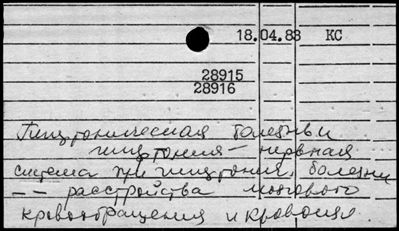 18.04.83 КС
28915
28916
Гипертоническая болезнь и
гипертония – нервная
система при гипертония, болезни
– – расстройства мозгового
кровообращения и